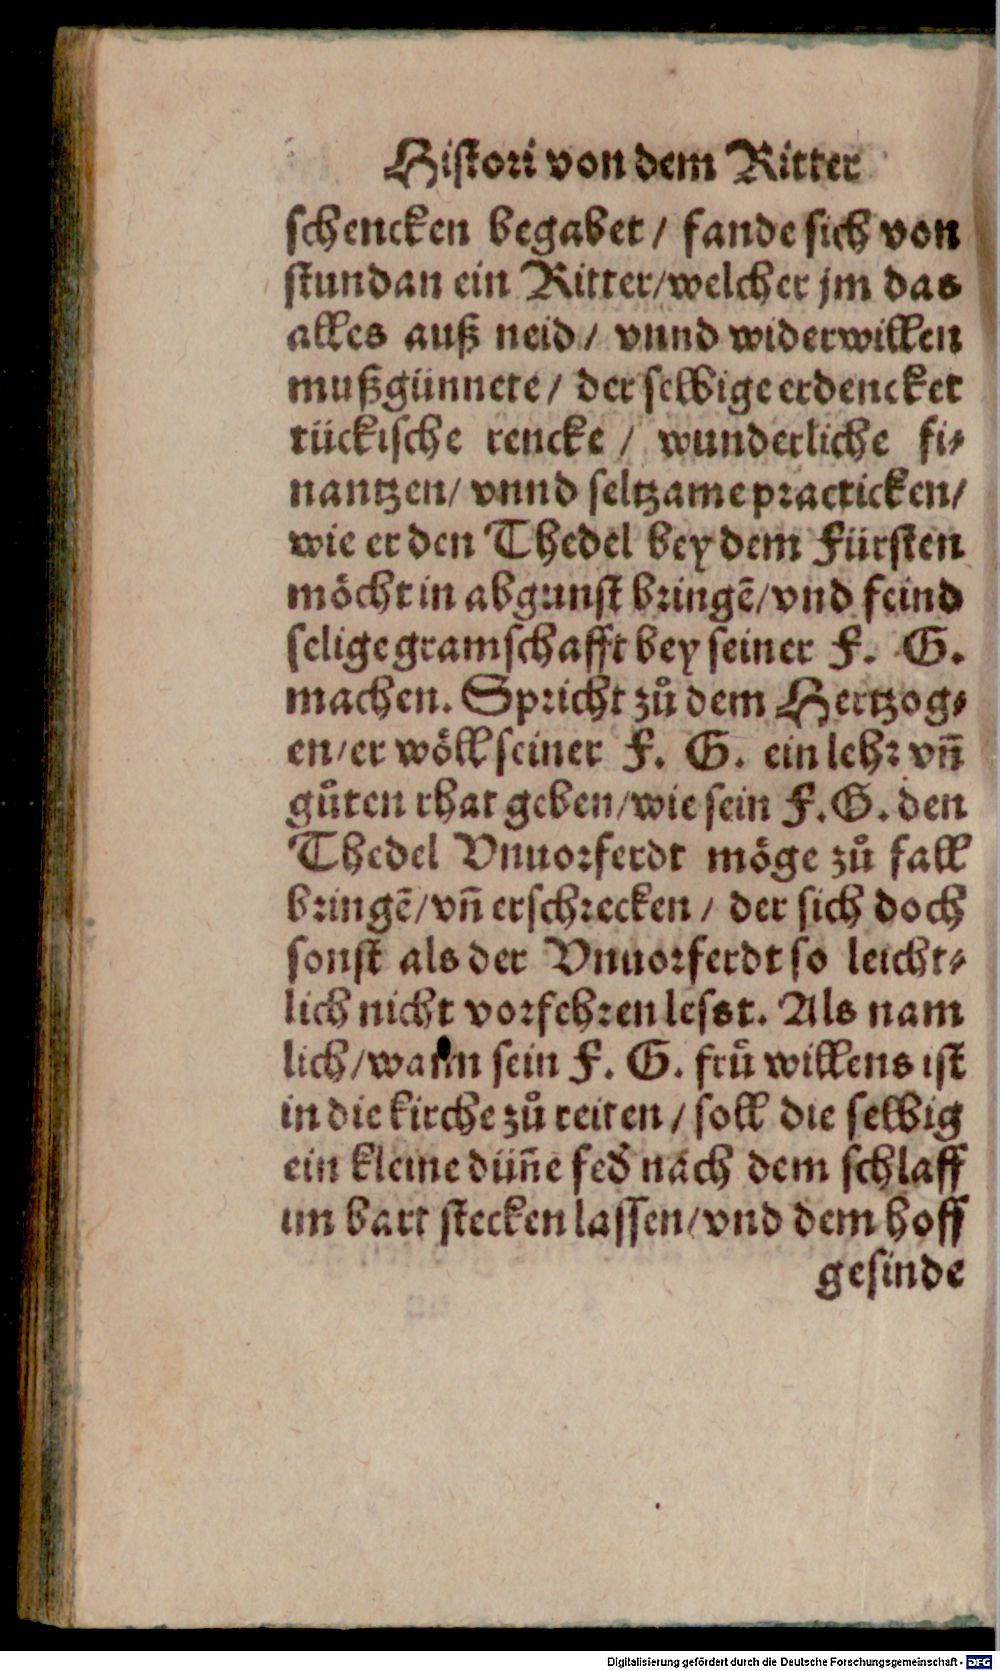 Histori von dem Ritter
schencken begabet / fande sich von
stundan ein Ritter/welcher jm das
alles auß neid / vnnd widerwillen
mußgünnete / der selbige erdencket
tückische rencke / wunderliche fi⸗
nantzen/ vnnd seltzame practicken/
wie er den Thedel bey dem Fürsten
möcht in abgunst bringẽ/vnd feind
selige gramschafft bey seiner F. G.
machen. Spricht zů dem Hertzog⸗
en/er wöll seiner F. G. ein lehr vñ
gůten rhat geben/wie sein F. G. den
Thedel Vnuorferdt möge zů fall
bringẽ/vñ erschrecken / der sich doch
sonst als der Vnuorferdt so leicht⸗
lich nicht vorfehren lesst. Als nam
lich/wann sein F. G. frü willens ist
in die kirche zů reiten / soll die selbig
ein kleine düñe fed̃ nach dem schlaff
im bart stecken lassen/vnd dem hoff
gesinde
Digitalisierung gefördert durch die Deutsche Forschungsgemeinschaft - DFG